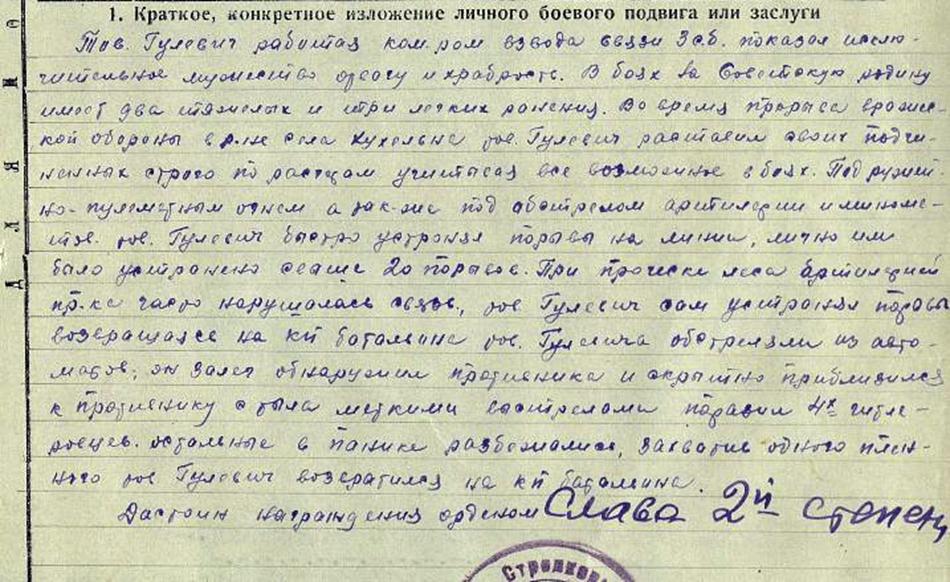 1. Краткое, конкретное изложение личного боевого подвига или заслуги
Тов. Гулевич работая ком. ром взвода связи 3 с.б. показал исклю-
чительное мужество отвагу и храбрость. В боях за Советскую родину
имеет два тяжелых и три легких ранения. Во время прорыва вражес-
кой обороны в р-не села Кухельна тов. Гулевич расставил своих подчи-
ненных строго по растцам учитывая все возможное в боях. Под ружей-
но-пулеметным огнем а так-же под обстрелом артилерии и миноме-
тов. тов. Гулевич быстро устранял порывы на линии, лично им
было устранено свыше 20 порывов. При прочески леса артилерией
пр-ка часто нарушалась связь, тов Гулевич сам устранял порывы
возвращаясь на КП батальона тов. Гулевича обстреляли из авто-
матов, он залег обнаружил противника и скрытно приблизился
к противнику с тыла меткими выстрелами поразил 4х гитле-
ровцев. остальные в панике разбежались, захватив одного плен-
ного тов Гулевич возвратился на КП батальона.
Достоин награждения орденом Слава 2й степени
Стрелков
ДЛЯ